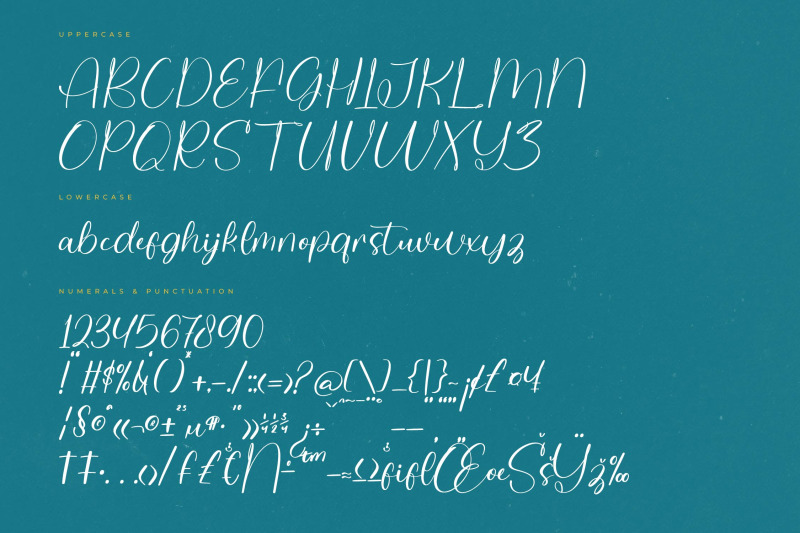 UPPERCASE
ABCDEFGHIJKLMN
OPQRSTUVWXYZ
LOWERCASE
abcdefghijklmnopqrstuvwxyz
NUMERALS & PUNCTUATION
1234567890
!"#$%&'()*+,-./:;<=>?@[\]_{|}~¡¢£¤¥
¦§©ª«¬®±²³µ¶·¹º»¼½¾¿÷
†‡•...‹›/ƒ₤€Π™−≈≤≥fiflŒœŠšŸž‰